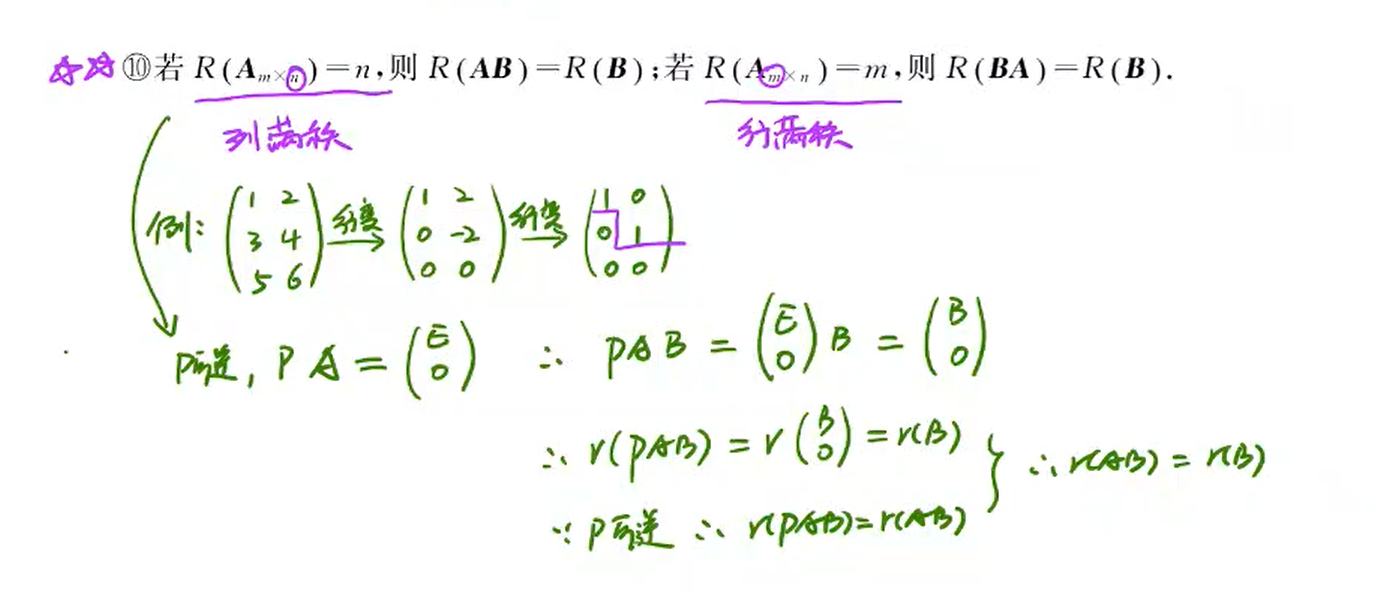 ☆☆ ⑩若 R(A_{m×n})=n,则 R(AB)=R(B);若 R(A_{m×n})=m,则 R(BA)=R(B).
列满秩 行满秩
例: (1 2; 3 4; 5 6) 行变→ (1 2; 0 -2; 0 0) 行变→ (1 0; 0 1; 0 0)
P可逆, PA = (E; 0) ∴ PAB = (E; 0) B = (B; 0)
∴ r(PAB) = r(B; 0) = r(B) } ∴ r(AB) = r(B)
∵ P可逆 ∴ r(PAB)=r(AB)